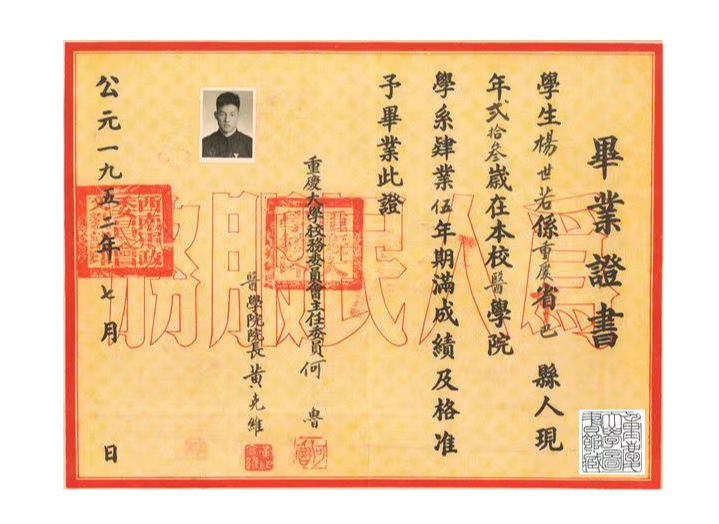 畢業證書
學生楊世若係重慶省巴縣人現
年弍拾叁歲在本校醫學院
學系肄業伍年期滿成績及格准
予畢業此證
重慶大學校務委員會主任委員何魯
醫學院院長黃克維
公元一九五二年七月 日
為人民服務
重慶大學圖書館藏